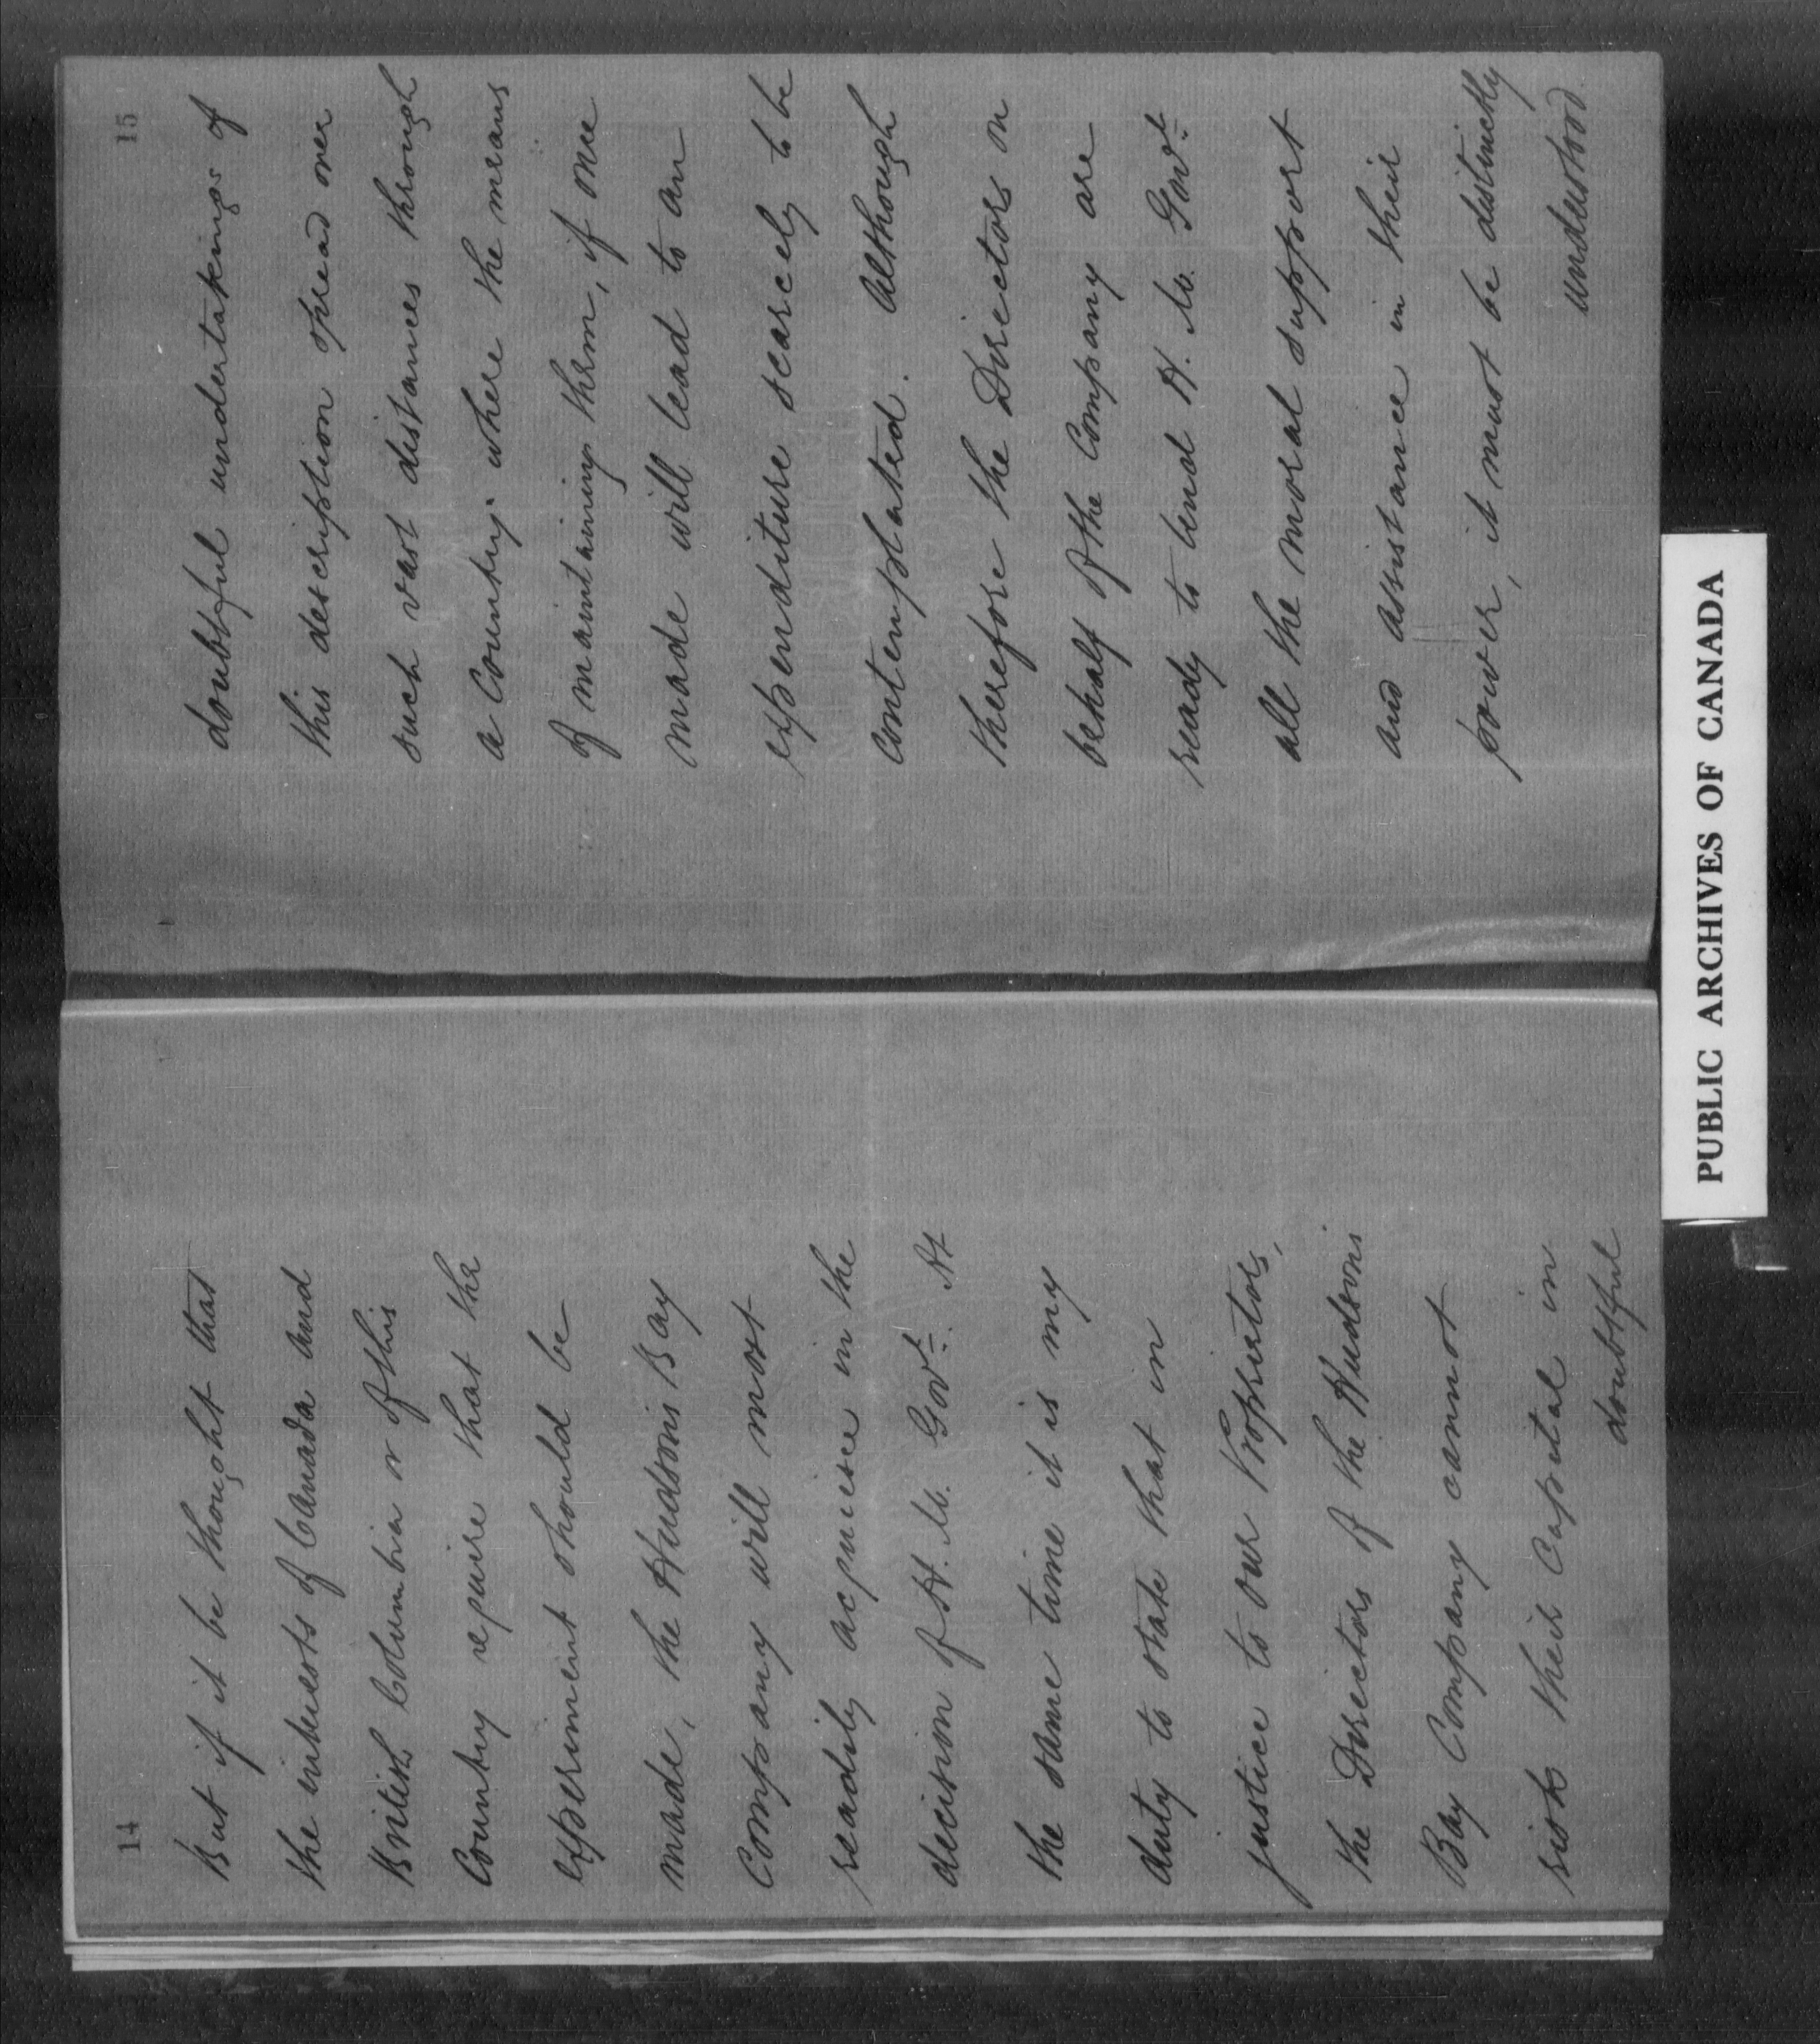 14
But if it be thought that
the interests of Canada and
British Columbia or of this
Country require that the
experiment should be
made, the Hudson's Bay
Company will most
readily acquiesce in the
decision of H. M. Govt. At
the same time it is my
duty to state that in
justice to our Proprietors,
the Directors of the Hudson's
Bay Company cannot
risk their Capital in
doubtful
15
doubtful undertakings of
this description spread over
such vast distances through
a Country where the means
of maintaining them, if once
made will lead to an
expenditure scarcely to be
contemplated. Although
therefore the Directors on
behalf of the Company are
ready to lend H. M. Govt
all the moral support
and assistance in their
power, it must be distinctly
understood.
PUBLIC ARCHIVES OF CANADA